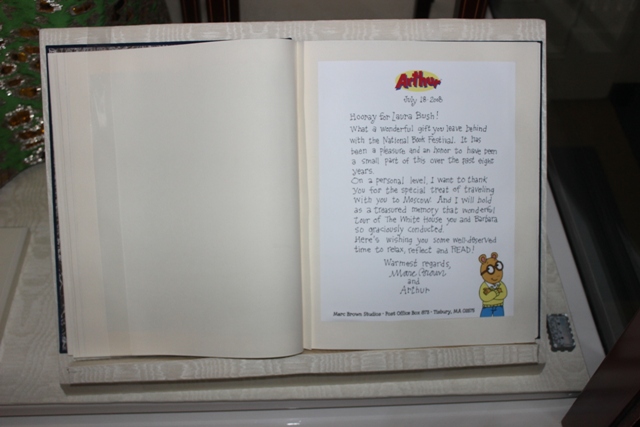 Arthur
July 18-2008
Hooray for Laura Bush!
What a wonderful gift you leave behind
with the National Book Festival. It has
been a pleasure and an honor to have been
a small part of this over the past eight
years.
On a personal level, I want to thank
you for the special treat of traveling
with you to Moscow. And I will hold
as a treasured memory that wonderful
tour of The White House you and Barbara
so graciously conducted.
Here's wishing you some well-deserved
time to relax, reflect and READ!
Warmest regards,
Marc Brown
and
Arthur
Marc Brown Studios • Post Office Box • Tisbury, MA